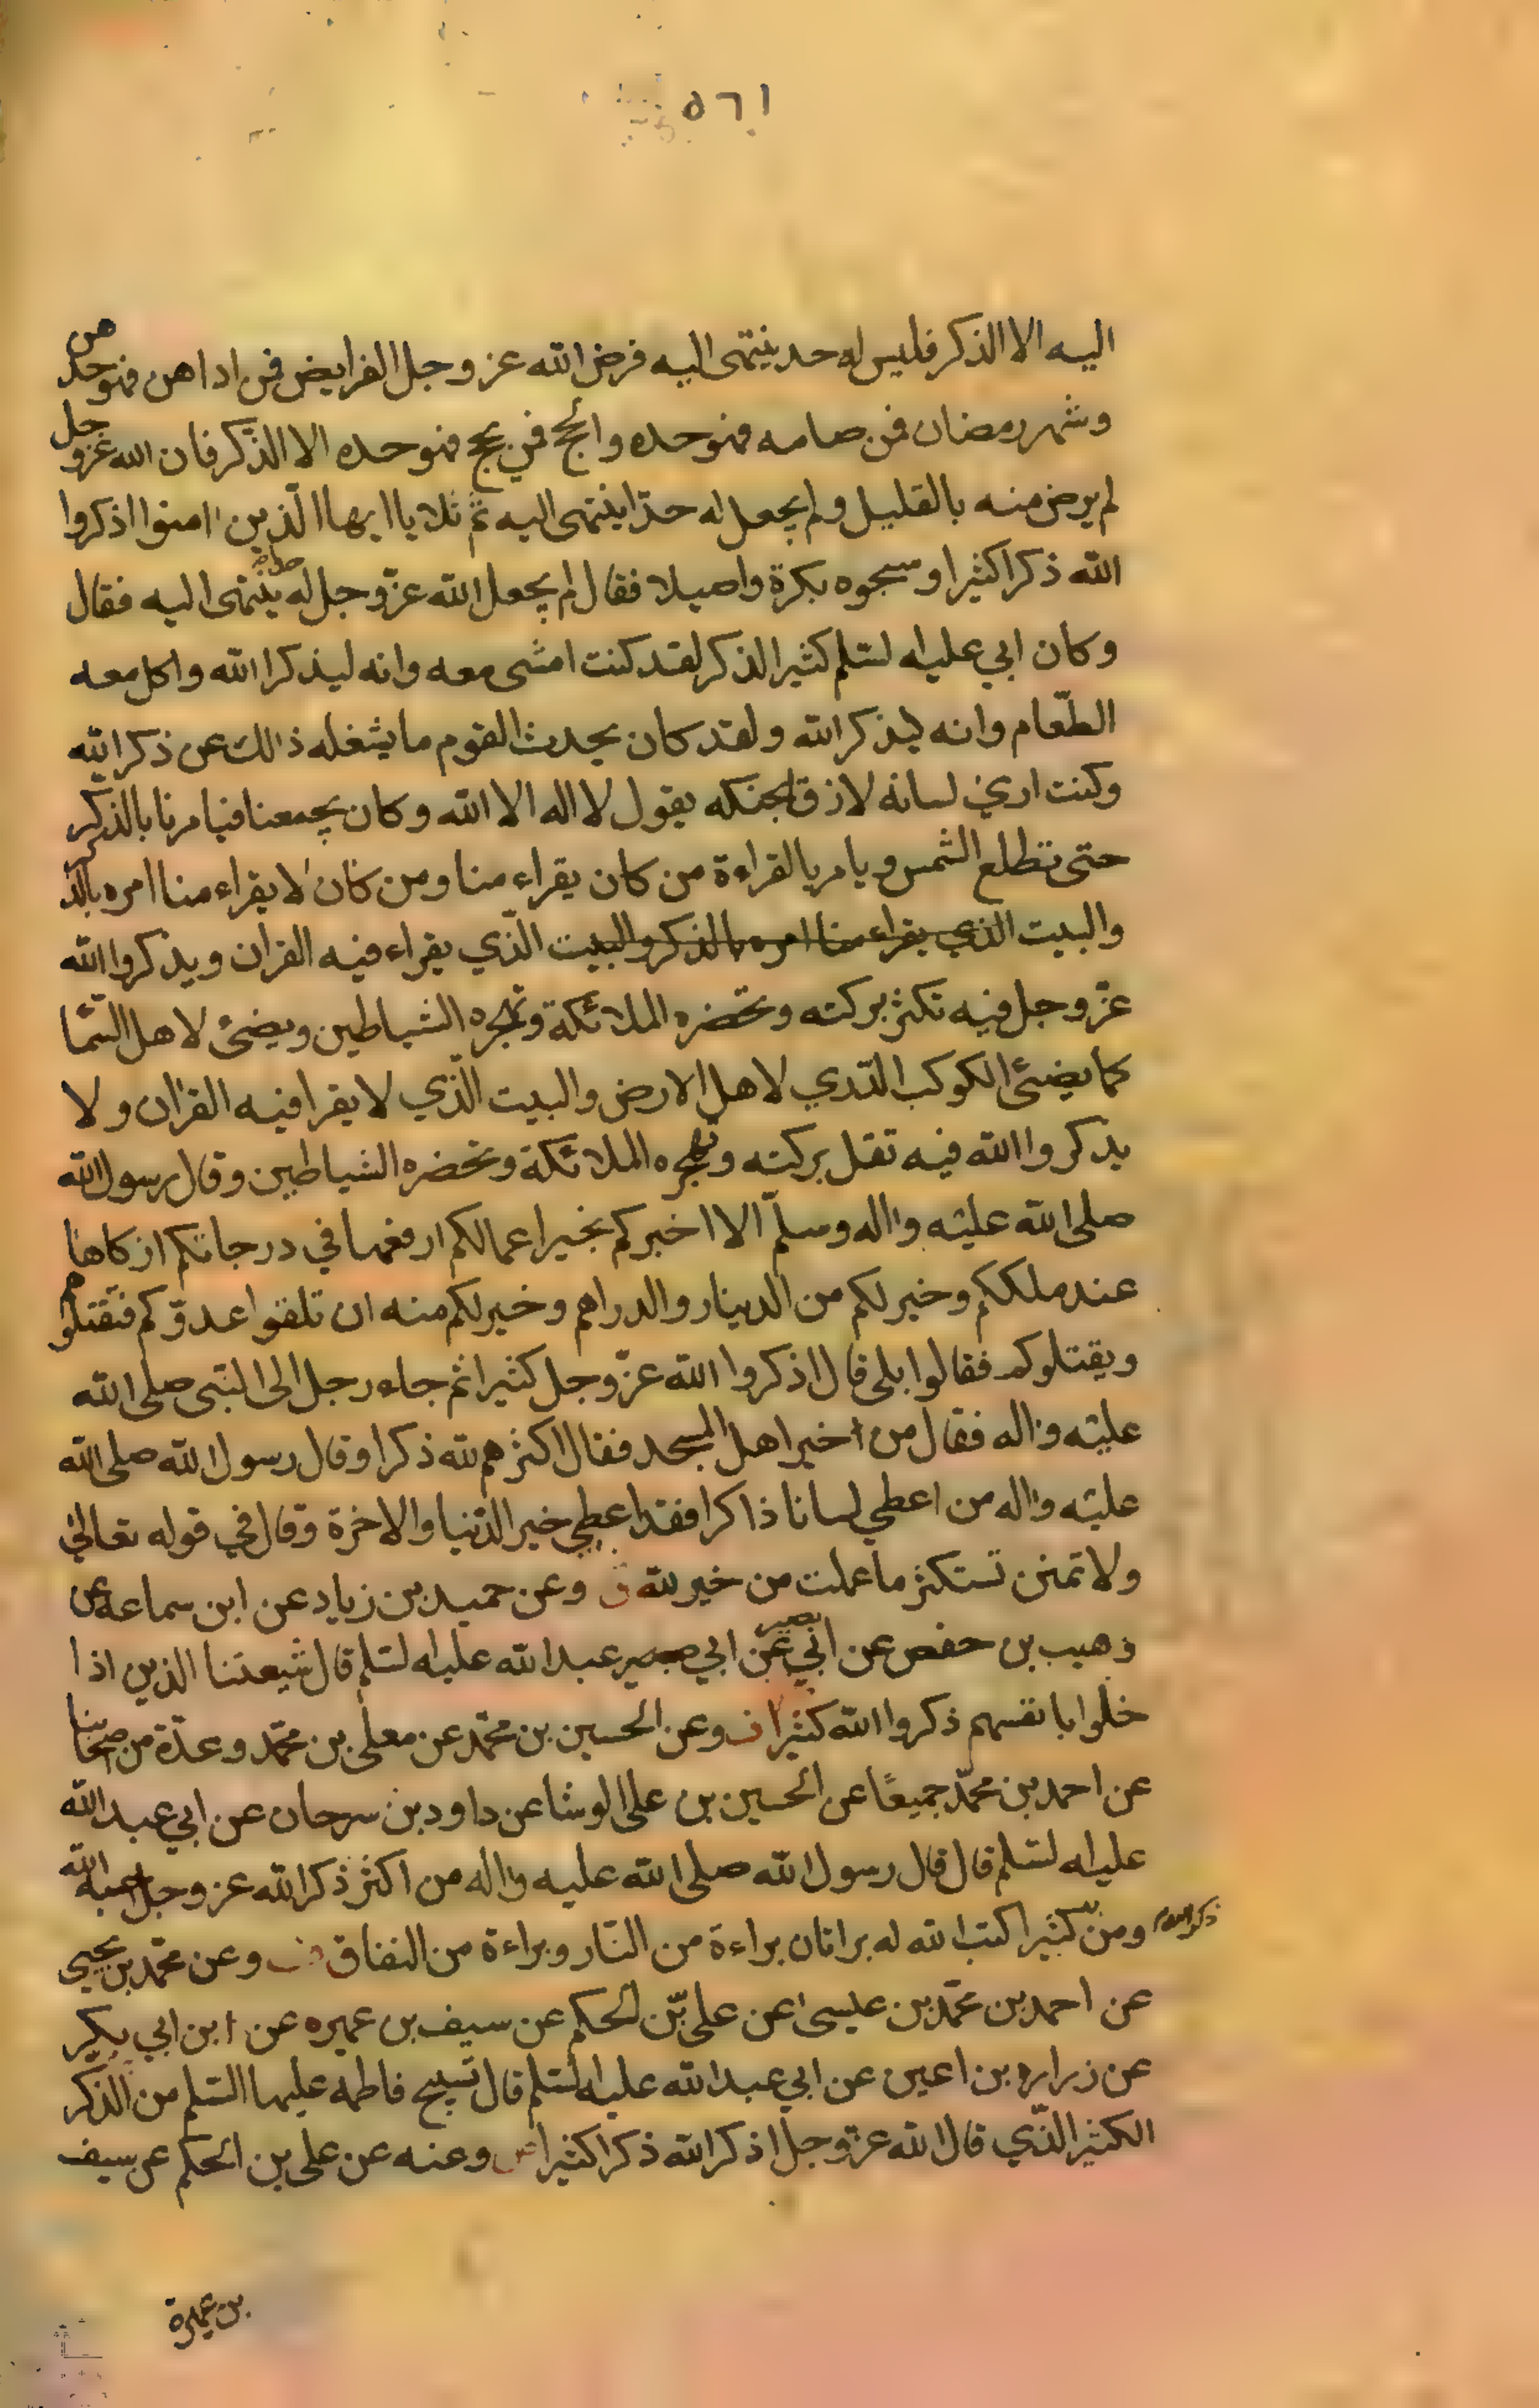 ١٦٥
اليه الا الذكر فليس له حد ينتهى اليه فرض الله عز وجل الفرايض فمن اداهن فهو حدهن
وشهر رمضان فمن صامه فهو حده والحج فمن حج فهو حده الا الذكر فان الله عز وجل
لم يرض منه بالقليل ولم يجعل له حدّا ينتهى اليه ثمّ تلا يا ايها الّذين امنوا اذكروا
الله ذكرا كثيرا وسبحوه بكرة واصيلا فقال لم يجعل الله عزّ وجل له حدا ينتهى اليه فقال
وكان ابي عليه السلم كثير الذكر لقد كنت امشى معه وانه ليذكر الله واكل معه
الطّعام وانه ليذكر الله ولقد كان يحدث القوم ما يشغله ذلك عن ذكر الله
وكنت ارى لسانه لازق بحنكه يقول لا اله الا الله وكان يجمعنا فيامرنا بالذكر
حتى تطلع الشمس ويامر بالقراءة من كان يقراء منا ومن كان لا يقراء منا امره بالذكر
والبيت الذي يقراء منا امره بالذكر والبيت الّذي يقراء فيه القران ويذكروا الله
عزّ وجل فيه تكثر بركته وتحضره الملائكة وتهجره الشياطين ويضئ لاهل السّما
كما يضئ الكوكب الدّري لاهل الارض والبيت الّذي لا يقرا فيه القران ولا
يذكروا الله فيه تقل بركته وتهجره الملائكة وتحضره الشياطين وقال رسول الله
صلى الله عليه واله وسلّم الا اخبركم بخير اعمالكم ارفعها في درجاتكم ازكاها
عند مليككم وخير لكم من الدينار والدراهم وخير لكم منه ان تلقوا عدوّكم فتقتلوهم
ويقتلوكم فقالوا بلى قال اذكروا الله عزّ وجل كثيرا ثم جاء رجل الى النّبى صلى الله
عليه واله فقال من اخير اهل المسجد فقال اكثرهم لله ذكرا وقال رسول الله صلى الله
عليه واله من اعطي لسانا ذاكرا فقد اعطي خير الدّنيا والاخرة وقال في قوله تعالى
ولا تمنن تستكثر ما عملت من خير لله وعن حميد بن زياد عن ابن سماعه عن
وهيب بن حفص عن ابي بصير عن ابي عبد الله عليه السلم قال شيعتنا الذين اذا
خلوا بانفسهم ذكروا الله كثيرا وعن الحسين بن محمّد عن معلى بن محمّد وعدّة من اصحابنا
عن احمد بن محمّد جميعًا عن الحسين بن على الوشا عن داود بن سرحان عن ابي عبد الله
عليه السلم قال قال رسول الله صلى الله عليه واله من اكثر ذكر الله عز وجل احبه الله
ومن ذكر الله كثيرا كتب الله له براتان براءة من النّار وبراءة من النفاق وعن محمّد بن يحيى
عن احمد بن محمّد بن عيسى عن على بن الحكم عن سيف بن عميره عن ابن ابي بكير
عن زراره بن اعين عن ابي عبد الله عليه السلم قال تسبيح فاطمه عليها السّلم من الذّكر
الكثير الّذي قال الله عزّ وجل اذكر الله ذكرا كثيرا وعنه عن على بن الحكم عن سيف
بن عميرة